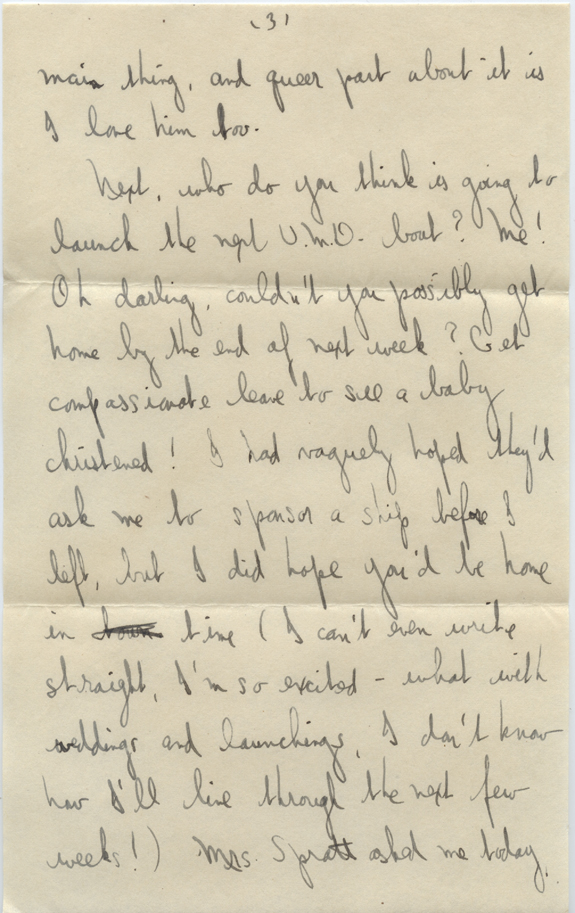 (3)
main thing, and queer part about it is
I love him too.
Next, who do you think is going to
launch the next U.M.O. boat? Me!
Oh darling, couldn't you possibly get
home by the end of next week? Get
compassionate leave to see a baby
christened! I had vaguely hoped they'd
ask me to sponsor a ship before I
left, but I did hope you'd be home
in town time (I can't even write
straight, I'm so excited - what with
weddings and launchings, I don't know
how I'll live through the next few
weeks!) Mrs. Spratt asked me today,